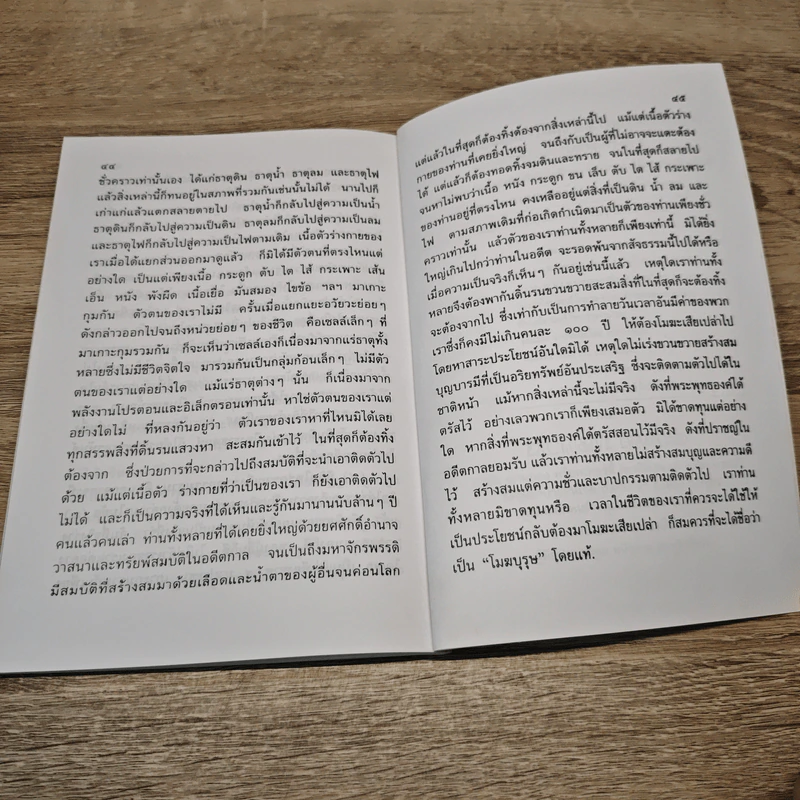 ๔๔
ชั่วคราวเท่านั้นเอง ได้แก่ธาตุดิน ธาตุน้ำ ธาตุลม และธาตุไฟ
แล้วสิ่งเหล่านี้ก็ทนอยู่ในสภาพที่รวมกันเช่นนั้นไม่ได้ นานไปก็
เก่าแก่แล้วแตกสลายตายไป ธาตุน้ำก็กลับไปสู่ความเป็นน้ำ
ธาตุดินก็กลับไปสู่ความเป็นดิน ธาตุลมก็กลับไปสู่ความเป็นลม
และธาตุไฟก็กลับไปสู่ความเป็นไฟตามเดิม เนื้อตัวร่างกายของ
เราเมื่อได้แยกส่วนออกมาดูแล้ว ก็มิได้มีตัวตนที่ตรงไหนแต่
อย่างใด เป็นแต่เพียงเนื้อ กระดูก ตับ ไต ไส้ กระเพาะ เส้น
เอ็น หนัง พังผืด เนื้อเยื่อ มันสมอง ไขข้อ ฯลฯ มาเกาะ
กุมกัน ตัวตนของเราไม่มี ครั้นเมื่อแยกแยะอวัยวะย่อยๆ
ดังกล่าวออกไปจนถึงหน่วยย่อยๆ ของชีวิต คือเซลล์เล็กๆ ที่
มาเกาะกุมรวมกัน ก็จะเห็นว่าเซลเองก็เนื่องมาจากแร่ธาตุทั้ง
หลายซึ่งไม่มีชีวิตจิตใจ มารวมกันเป็นกลุ่มก้อนเล็กๆ ไม่มีตัว
ตนของเราแต่อย่างใด แม้แร่ธาตุต่างๆ นั้น ก็เนื่องมาจาก
พลังงานโปรตอนและอิเล็กตรอนเท่านั้น หาใช่ตัวตนของเราแต่
อย่างใดไม่ ที่หลงกันอยู่ว่า ตัวเราของเราหาที่ไหนมิได้เลย
ทุกสรรพสิ่งที่ดิ้นรนแสวงหา สะสมกันเข้าไว้ ในที่สุดก็จะต้องทิ้ง
ต้องจาก ซึ่งป่วยการที่จะกล่าวไปถึงสมบัติที่จะนำเอาติดตัวไป
ด้วย แม้แต่เนื้อตัว ร่างกายที่ว่าเป็นของเรา ก็ยังเอาติดตัวไป
ไม่ได้ และก็เป็นความจริงที่ได้เห็นและรู้กันมานานนับล้านๆ ปี
คนแล้วคนเล่า ท่านทั้งหลายที่ได้เคยยิ่งใหญ่ด้วยยศศักดิ์อำนาจ
วาสนาและทรัพย์สมบัติในอดีตกาล จนเป็นถึงมหาจักรพรรดิ
มีสมบัติที่สร้างสมมาด้วยเลือดและน้ำตาของผู้อื่นจนค่อนโลก
๔๕
แต่แล้วในที่สุดก็ต้องทิ้งต้องจากสิ่งเหล่านี้ไป แม้แต่เนื้อตัวร่าง
กายของท่านที่เคยยิ่งใหญ่ จนถึงกับเป็นผู้ที่ไม่อาจจะแตะต้อง
ได้ แต่แล้วก็ต้องทอดทิ้งจมดินและทราย จนในที่สุดก็สลายไป
จนหาไม่พบว่าเนื้อ หนัง กระดูก ขน เล็บ ตับ ไต ไส้ กระเพาะ
ของท่านอยู่ที่ตรงไหน คงเหลืออยู่แต่สิ่งที่เป็นดิน น้ำ ลม และ
ไฟ ตามสภาพเดิมที่ก่อเกิดกำเนิดมาเป็นตัวของท่านเพียงชั่ว
คราวเท่านั้น แล้วตัวของเราท่านทั้งหลายก็เพียงเท่านี้ มิได้ยิ่ง
ใหญ่เกินไปกว่าท่านในอดีต จะรอดพ้นจากสัจธรรมนี้ไปได้หรือ
เมื่อความเป็นจริงก็เห็นๆ กันอยู่เช่นนี้แล้ว เหตุใดเราท่านทั้ง
หลายจึงต้องพากันดิ้นรนขวนขวายสะสมสิ่งที่ในที่สุดก็จะต้องทิ้ง
จะต้องจากไป ซึ่งเท่ากับเป็นการทำลายวันเวลาอันมีค่าของพวก
เราซึ่งก็คงมีไม่เกินคนละ ๑๐๐ ปี ให้ต้องโมฆะเสียเปล่าไป
โดยหาสาระประโยชน์อันใดมิได้ เหตุใดไม่เร่งขวนขวายสร้างสม
บุญบารมีที่เป็นอริยทรัพย์อันประเสริฐ ซึ่งจะติดตามตัวไปได้ใน
ชาติหน้า แม้หากสิ่งเหล่านี้จะไม่มีจริง ดังที่พระพุทธองค์ได้
ตรัสไว้ อย่างเลวพวกเราก็เพียงเสมอตัว มิได้ขาดทุนแต่อย่าง
ใด หากสิ่งที่พระพุทธองค์ได้ตรัสสอนไว้มีจริง ดังที่ปราชญ์ใน
อดีตกาลยอมรับ แล้วเราท่านทั้งหลายไม่สร้างสมบุญและความดี
ไว้ สร้างสมแต่ความชั่วและบาปกรรมตามติดตัวไป เราท่าน
ทั้งหลายมิขาดทุนหรือ เวลาในชีวิตของเราที่ควรจะได้ใช้ให้
เป็นประโยชน์กลับต้องมาโมฆะเสียเปล่า ก็สมควรที่จะได้ชื่อว่า
เป็น “โมฆบุรุษ” โดยแท้.